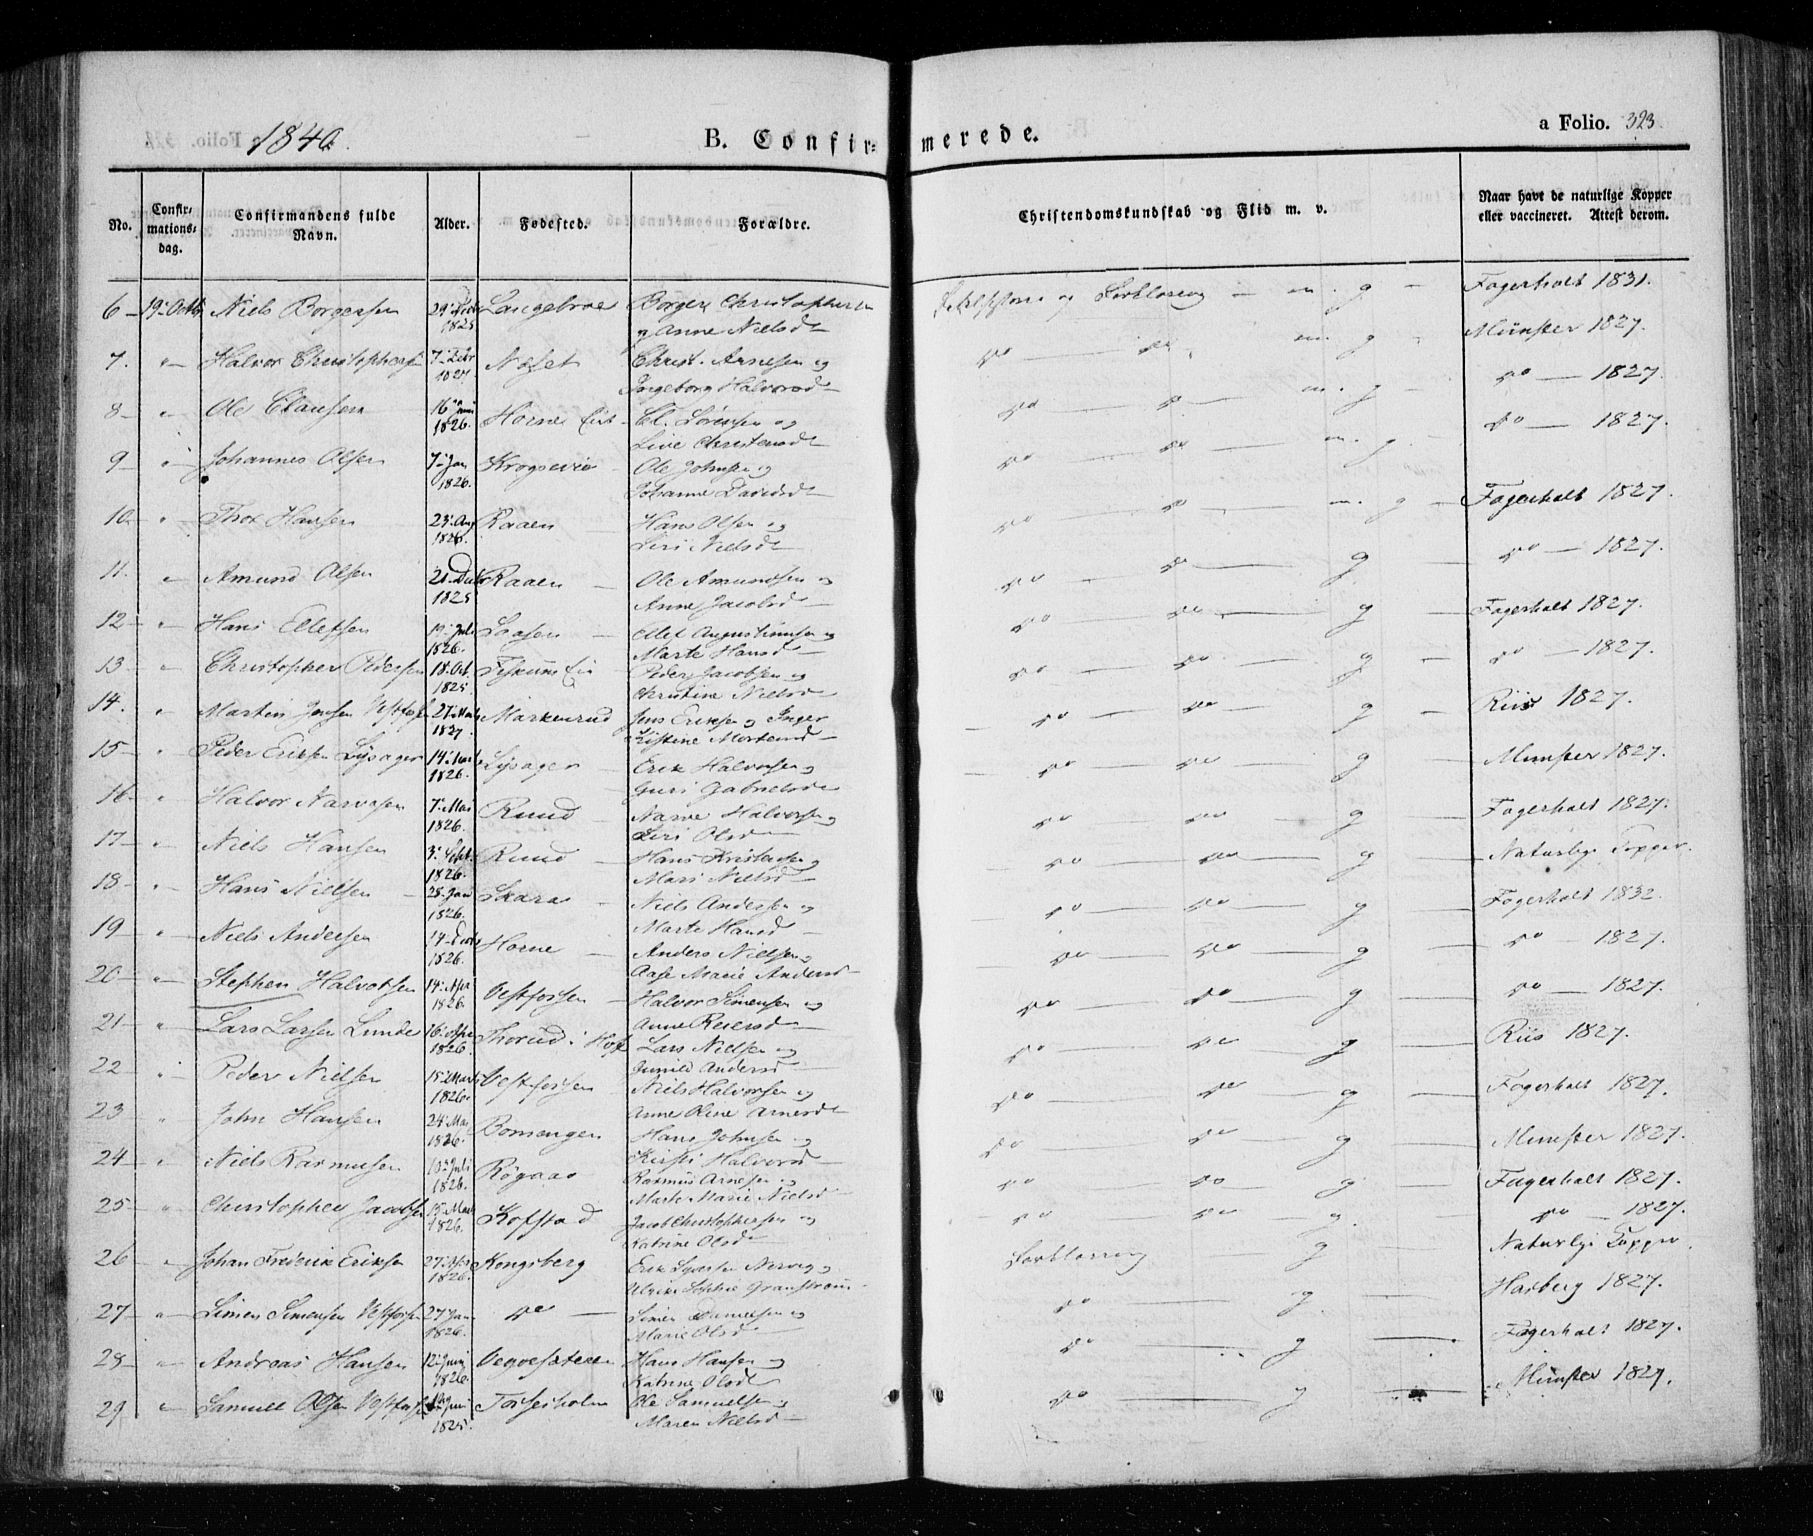 1840.
B. Confirmerede.
a Folio. 323.
No. Confirmationsdag. Confirmandens fulde Navn. Alder. Fødested. Forældre. Christendomskundskab og Flid m. v. Naar havt de naturlige Kopper eller vaccineret. Attest derom.
6 – 19 Octb Niels Borgersen 29 1825 Langebroe Borger Christophersen og Anne Nielsd og m. g – Fagerholt 1831.
7. " Halvor Christophersen 7 Febr 1827 Næset Christ. Arnesen og Ingeborg Halvorsd do — do — m. g Münster 1827.
8 – " Ole Clausen 16 Juni 1826. Horne Eie Cl. Sørensen og Live Christensd do — do — m. g – do — 1827.
9 " Johannes Olsen 7 Jan 1826. Krogsevie Ole Johnsen og Johanne Davidsd do — do — m. g. do — 1827.
10 – " Thor Hansen 23 Aug 1826. Raaen Hans Olsen og Siri Nielsd do — do — m. g – Fagerholt 1827.
11. " Amund Olsen 21 Dec 1825 Raaen Ole Amundsen og Anne Jacobsd do — do — g do — 1827.
12 – " Hans Ellefsen 19 Juli 1826. Laasen Ellef Augustinusen og Marte Hansd do — do — g Fagerholt 1827.
13 – " Christopher Pedersen 18 Oct. 1825 Fiskum Eie Peder Jacobsen og Christine Nielsd do — do — g – do — 1827.
14. " Martin Jensen Vestfossen 27 Marts 1827. Markerud Jens Eriksen og Inger Kistine Mortensd do — do — g – Riis 1827.
15 – " Peder Eriksen Lysager 14 1826. Lysager Erik Halvorsen og Guri Gabrielsd do — do — g Münster 1827.
16 " Halvor Narvesen 7 Mai 1826. Ruud Narve Halvorsen og Siri Olsd do — do — g Fagerholt 1827.
17 – " Niels Hansen 3 Sept. 1826. Ruud Hans Kristensen og Mari Nielsd do — do — g Naturlige Copper.
18 – " Hans Nielsen 28 Jan 1826. Skara Niels Andersen og Marte Hansd do — do — g Fagerholt 1832.
19 " Niels Andersen 14 1826. Horne Anders Nielsen og Aase Marie Andersd do — do — g do — 1827.
20 – " Stephen Halvorsen 14 Apr 1826. Vestfossen Halvor Simensen og Anne Reiersd do — do — g do — 1827.
21 – " Lars Larsen Lunde 16 Apr 1826. Thorud i Hof Lars Nielsen og Gunild Andersd do — do — g Riis 1827.
22 – " Peder Nielsen 15 Marts 1826. Vestfossen Niels Halvorsen og Anne Oline Arnesd do — do — g Fagerholt 1827.
23 " John Hansen 24 Mai 1826. Bomengen Hans Johnsen og Kirsti Halvorsd do — do — g Münster 1827.
24 – " Niels Rasmusen 10 Juli 1826. Røgaas Rasmus Arnesen og Marte Marie Nielsd do — do — g Fagerholt 1827.
25 – " Christopher Jacobsen 15 Marts 1826. Kofstad Jacob Christophersen og Katrine Olsd do — do — g. do — 1827.
26 " Johan Frederik Eriksen 27 Apr 1826. Kongsberg Erik og Ulrike Sophie g Naturlige Copper.
27 – " Simen Simensen Vestfossen 27 Jan 1826. do — Simen Danielsen og Marie Olsd do — g Hasberg 1827.
28 – " Andreas Hansen 12 Juni 1826. Vegvesæteren Hans Hansen og Katrine Olsd do — g Fagerholt 1827.
29 " Samuel Olsen Vestfossen Juni 1825. Fossesholm Ole Samuelsen og Maren Nielsd do — g Münster 1827.